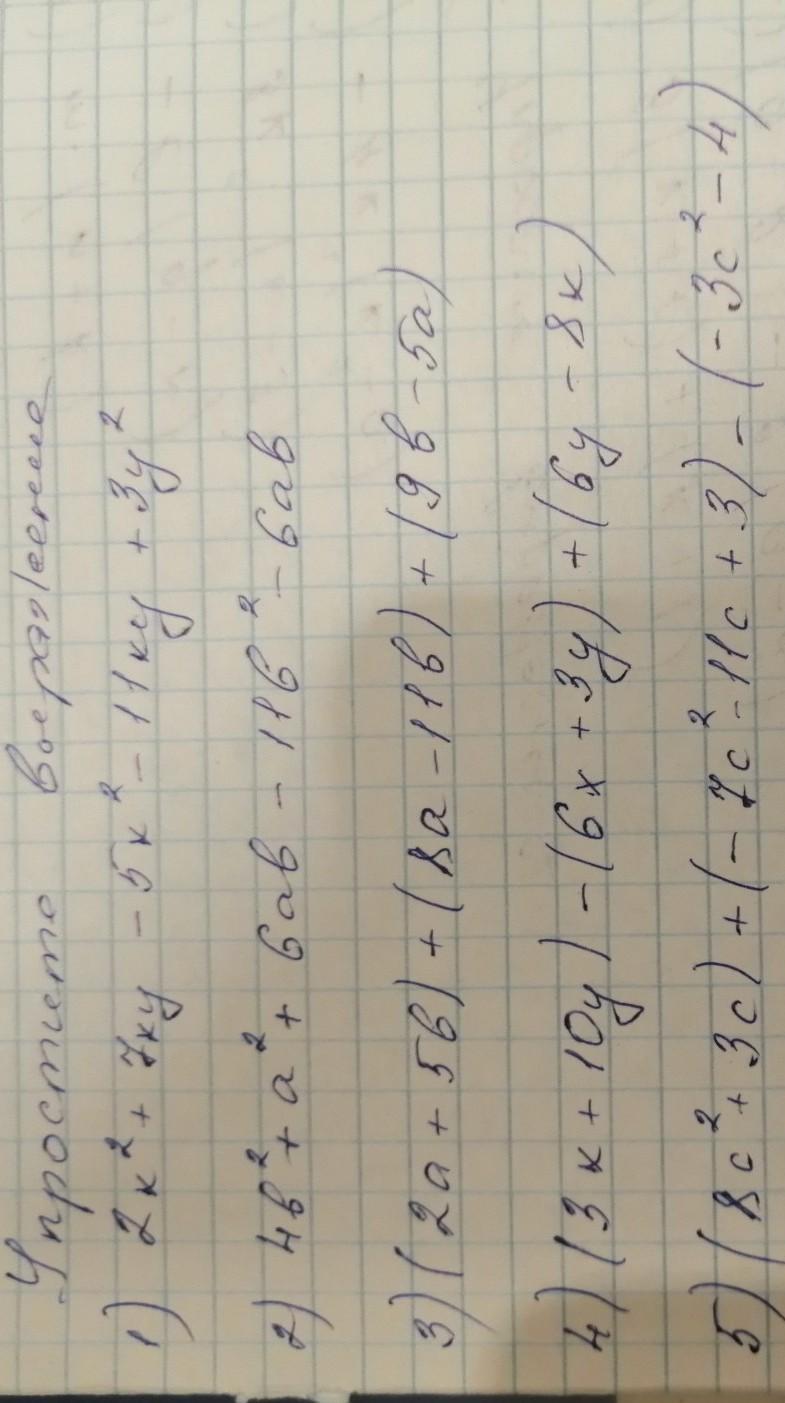 Упростить выражение
1) 2x² + 7xy - 5x² - 11xy + 3y²
2) 4b² + a² + 6ab - 11b² - 6ab
3) (2a + 5b) + (8a - 11b) + (9b - 5a)
4) (3x + 10y) - (6x + 3y) + (6y - 8x)
5) (8c² + 3c) + (- 7c² - 11c + 3) - (- 3c² - 4)